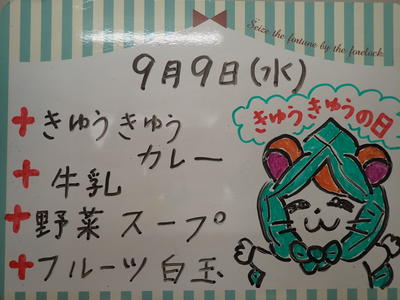 Seize the fortune by the forelock.
9月9日(水)
きゅうきゅうの日
+きゅうきゅう
カレー
+牛乳
+野菜スープ
+フルーツ白玉